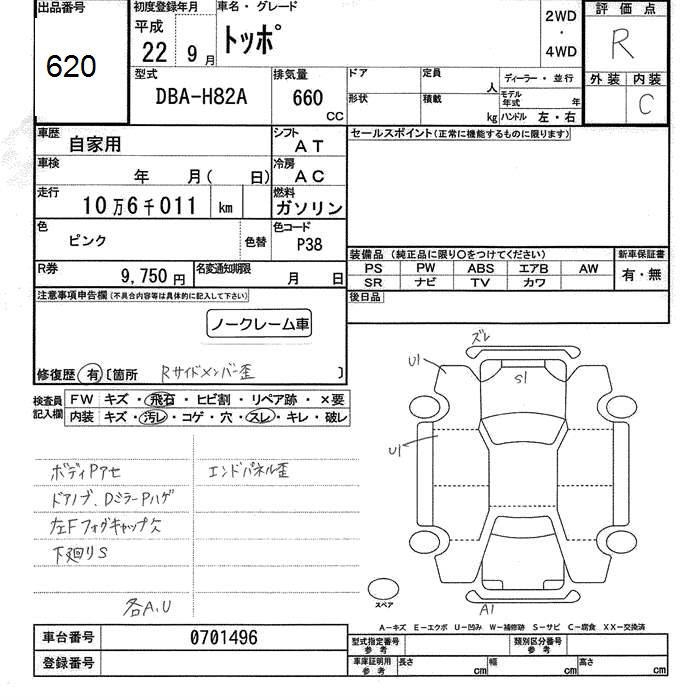 出品番号
620
初度登録年月
平成
22 9 月
車名・グレード
トッポ
2WD
・
4WD
評価点
R
外装 内装
C
型式
DBA-H82A
排気量
660
CC
ドア
形状
定員
人
積載
kg
ディーラー・並行
モデル
年式
年
ハンドル 左・右
車歴
自家用
シフト
AT
車検
年 月( 日)
冷房
AC
走行
10万6千011 km
燃料
ガソリン
色
ピンク
色替
色コード
P38
R券
9,750 円
名変通知期限
月 日
セールスポイント(正常に機能するものに限ります)
装備品 (純正品に限り〇をつけてください)
PS PW ABS エアB AW
SR ナビ TV カワ
新車保証書
有・無
後日品
注意事項申告欄(不具合内容等は具体的に記入して下さい)
ノークレーム車
修復歴 有 〔箇所 Rサイドメンバー歪 〕
検査員
記入欄
FW キズ・飛石・ヒビ割・リペア跡・×要
内装 キズ・汚レ・コゲ・穴・スレ・キレ・破レ
ボディPアセ
エンドパネル歪
ドアノブ、DミラーPハゲ
左Fフォグキャップ欠
下廻りS
各A、U
ズレ
U1
S1
U1
A1
スペア
A-キズ E-エクボ U-凹み W-補修跡 S-サビ C-腐食 XX-交換済
車台番号
0701496
登録番号
型式指定番号
参考
類別区分番号
参考
車庫証明用
参考
長さ
cm
幅
cm
高さ
cm